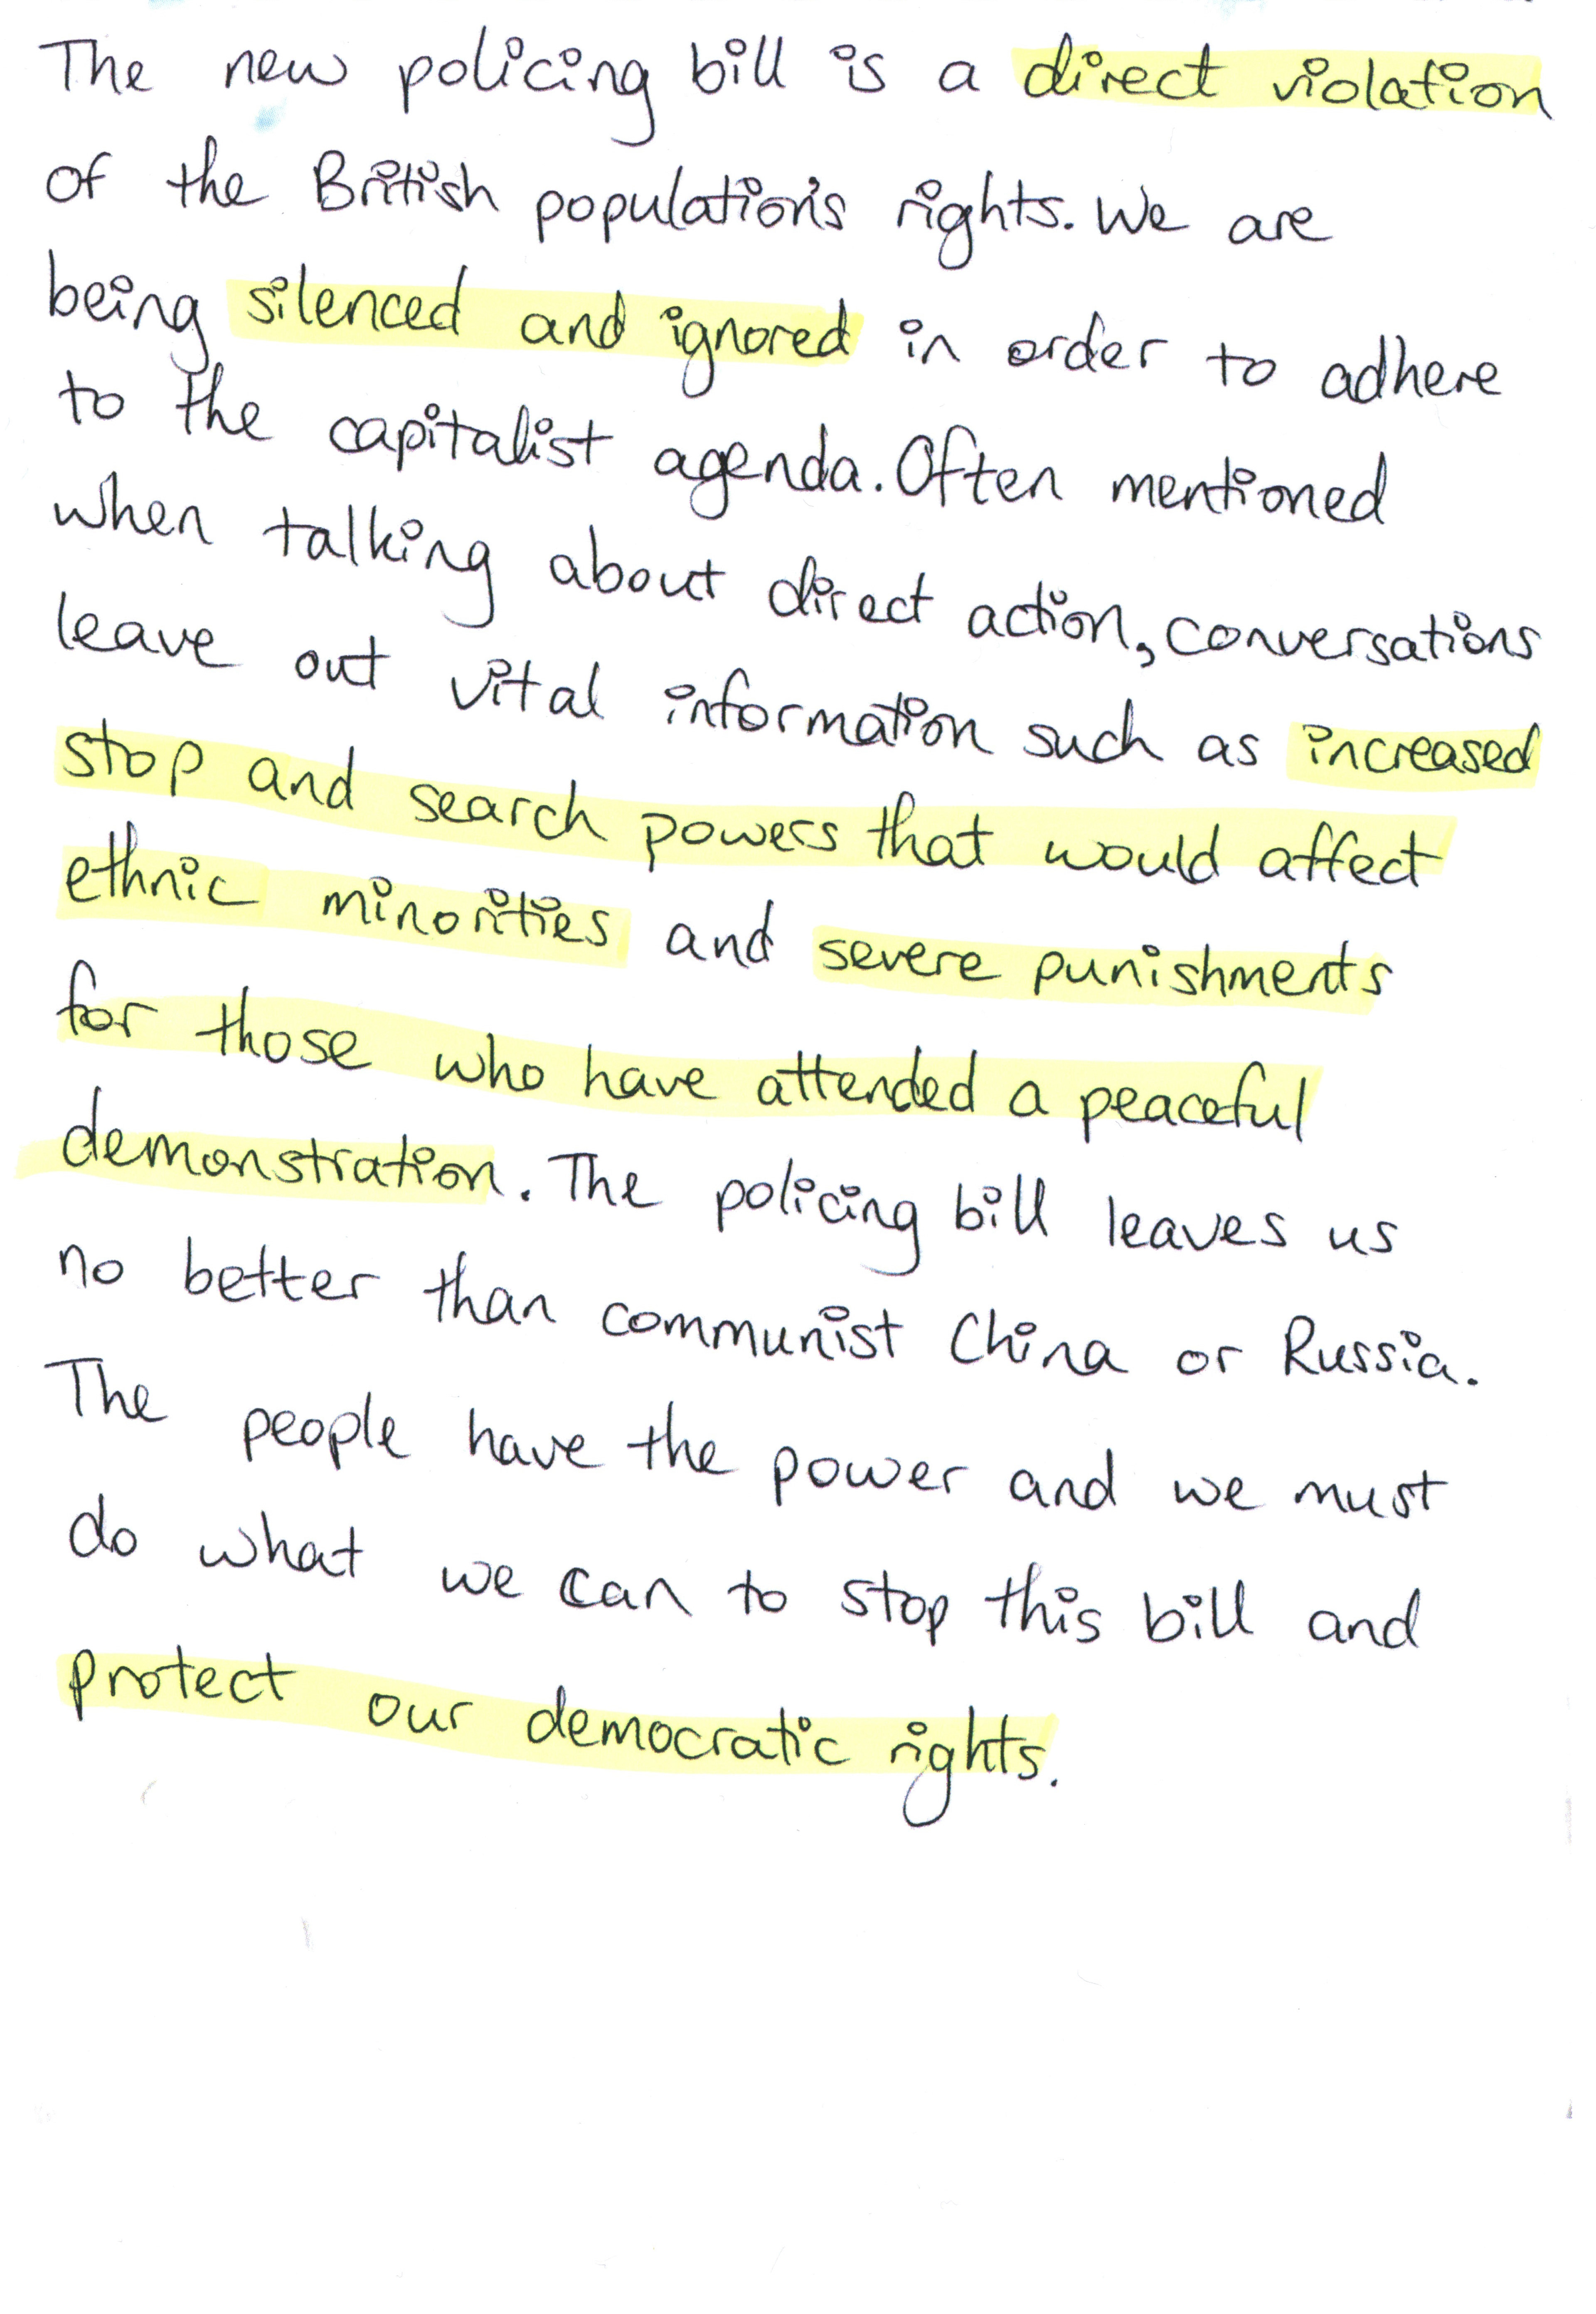 The new policing bill is a direct violation
of the British population's rights. We are
being silenced and ignored in order to adhere
to the capitalist agenda. Often mentioned
when talking about direct action, conversations
leave out vital information such as increased
stop and search powers that would affect
ethnic minorities and severe punishments
for those who have attended a peaceful
demonstration. The policing bill leaves us
no better than communist China or Russia.
The people have the power and we must
do what we can to stop this bill and
protect our democratic rights.